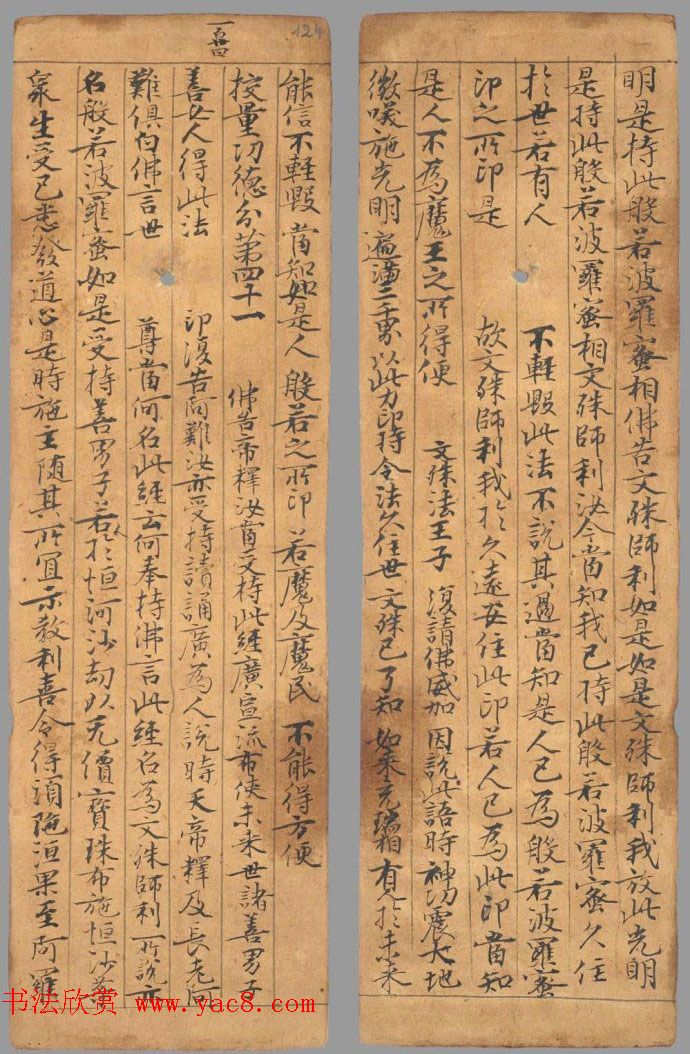 明是持此般若波羅蜜相佛告文殊師利如是如是文殊師利我放此光明
是持此般若波羅蜜相文殊師利汝今當知我已持此般若波羅蜜久住
於世若有人 不輕毀此法不說其過當知是人已為般若波羅蜜
印之所印是 故文殊師利我於久遠安住此印若人已為此印當知
是人不為魔王之所得便 文殊法王子 復請佛威加 因說此語時 神功震大地
微咲施光明 遍滿三千界 以此力印持 令法久住世 文殊已了知 如來光瑞相 有於未來
124
一百廿四
能信不輕毀 當知如是人 般若之所印 若魔及魔民 不能得方便
挍量功德分第四十一 佛告帝釋汝當受持此經廣宣流布使未來世諸善男子
善女人得此法 印復告阿難汝亦受持讀誦廣為人說時天帝釋及長老阿
難俱白佛言世 尊當何名此經云何奉持佛言此經名為文殊師利所說亦
名般若波羅蜜如是受持善男子若於恒河沙劫以无價寶珠布施恒沙等
衆生受已悉發道心是時施主隨其所宜示教利喜令得須陁洹果至阿羅
书法欣赏 www.yac8.com